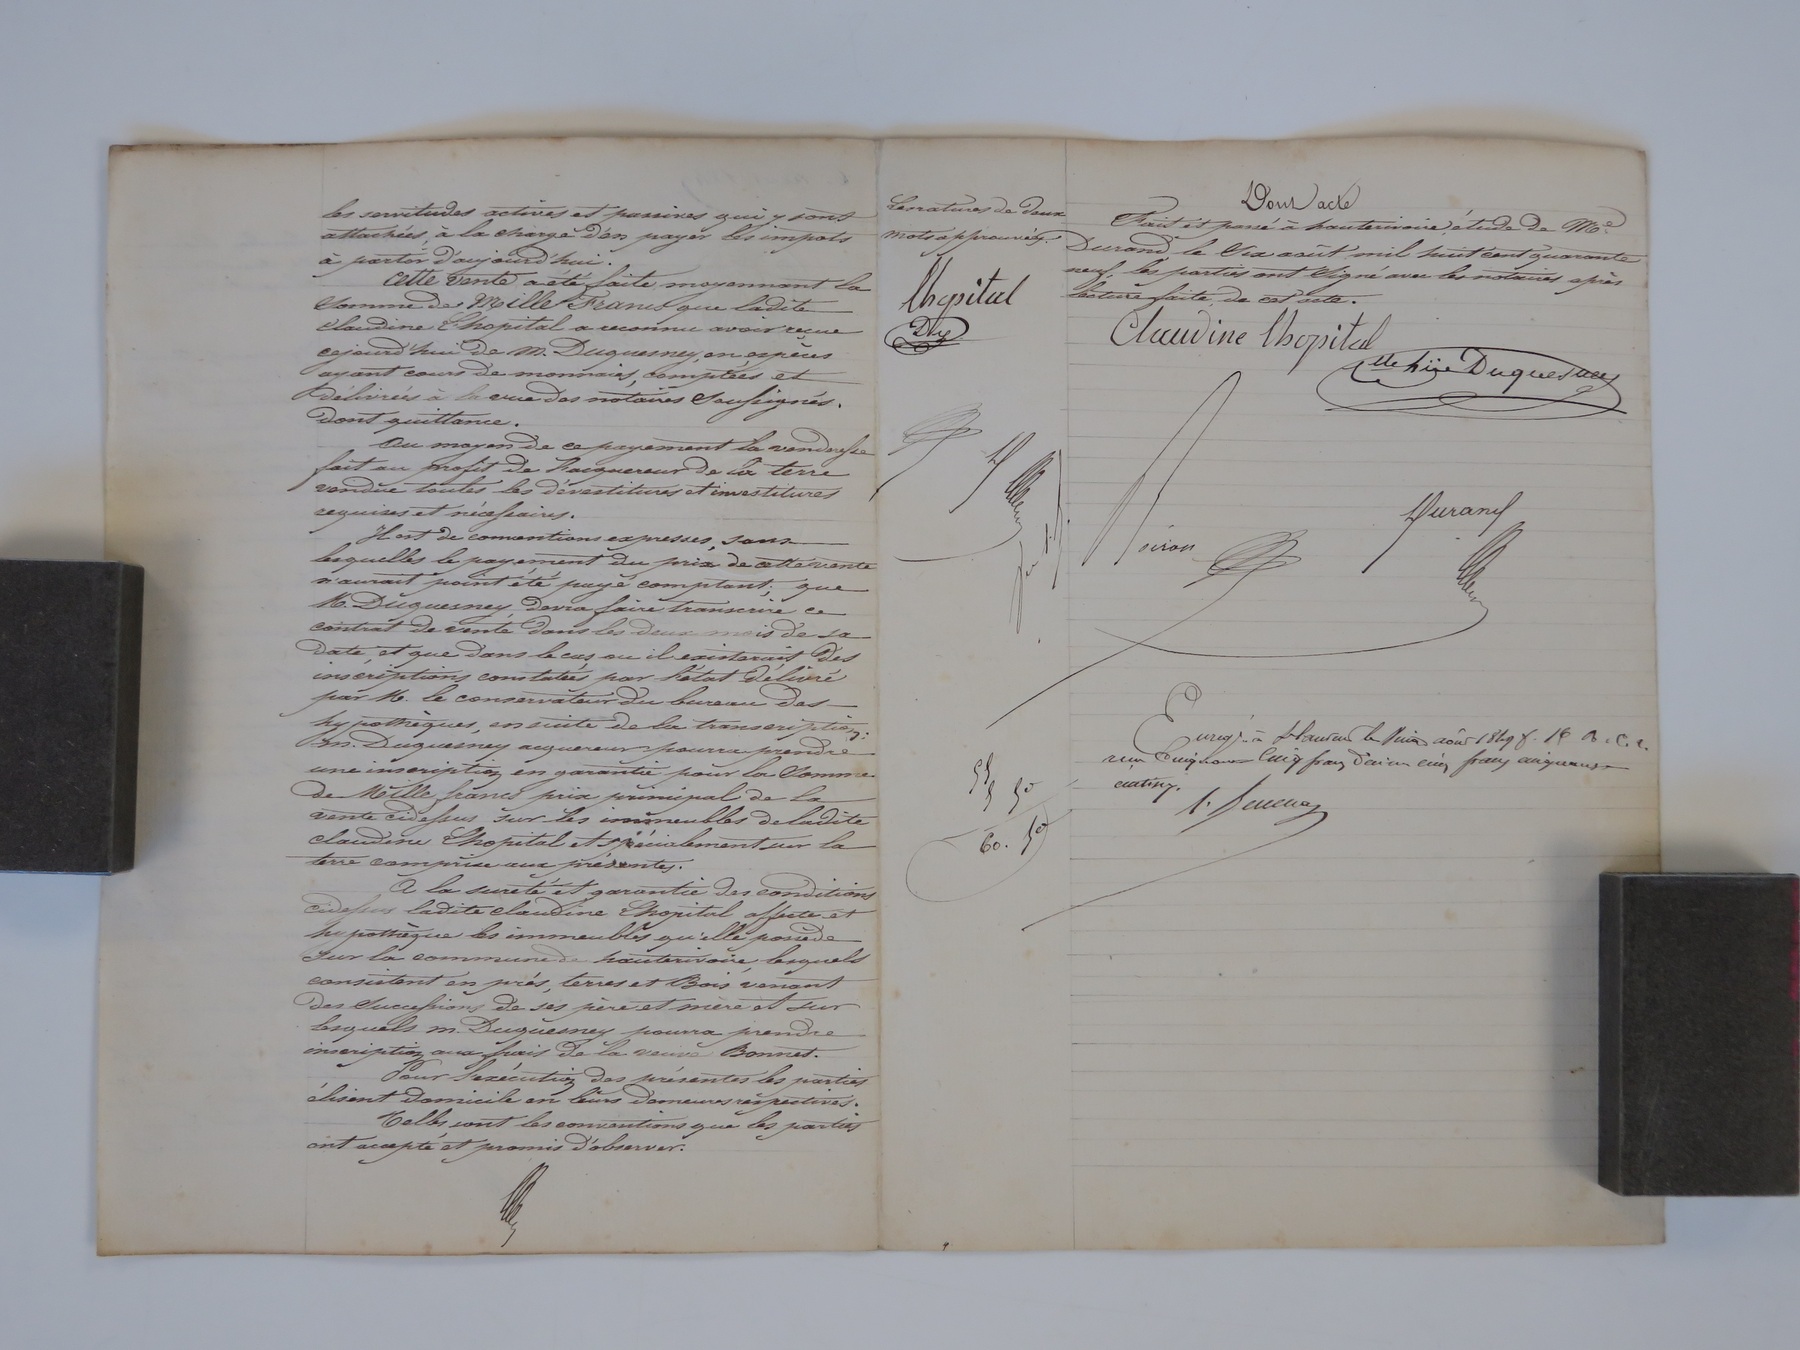 les servitudes actives et passives qui y sont
attachées, à la charge d'en payer les impots
à partir d'aujourd'hui.
Cette vente a été faite moyennant la
somme de Mille Francs que ladite
Claudine Lhopital a reconnu avoir reçue
cejourd'hui de M. Duquesney, en espèces
ayant cours de monnaies, comptées et
délivrées à la vue des notaires soussignés.
dont quittance.
Au moyen de ce payement la venderesse
fait au profit de l'acquereur de la terre
vendue toutes les dévestitures et investitures
requises et nécessaires.
Il est de conventions expresses, sans
lesquelles le payement du prix de cette vente
n'aurait point été payé comptant, que
M. Duquesney devra faire transcrire ce
contrat de vente dans les deux mois de sa
date, et que dans le cas ou il existerait des
inscriptions constatées par l'état délivré
par M. le conservateur du bureau des
hypothèques, en suite de la transcription;
m. Duquesney acquereur pourra prendre
une inscription en garantie pour la somme
de Mille francs prix principal de la
vente cidessus sur les immeubles de ladite
claudine Lhopital et spécialement sur la
terre comprise aux présentes.
A la sureté et garantie des conditions
cidessus ladite claudine Lhopital affecte et
hypothèque les immeubles qu'elle possède
sur la commune de hauterivoire, lesquels
consistent en prés, terres et Bois, venant
des successions de ses père et mère et sur
lesquels m. Duquesney pourra prendre
inscription aux frais de la veuve Bonnet.
Pour l'exécution des présentes les parties
élisent domicile en leurs demeures respectives.
Telles sont les conventions que les parties
ont accepté et promis d'observer.
Les ratures de deux
mots approuvées.
lhopital
Dy
55
5 50
60. 50
Dont acte
Fait et passé à hauterivoire, étude de Me
Durand, le six août mil huit cent quarante
neuf. les parties ont signé avec les notaires après
lecture faite, de cet acte.
Claudine lhopital
Duquesney
Durand
Enregé. à St Laurent le août 1849 f.
reçu Cinquante Cinq francs Décime cinq francs cinquante
centimes.